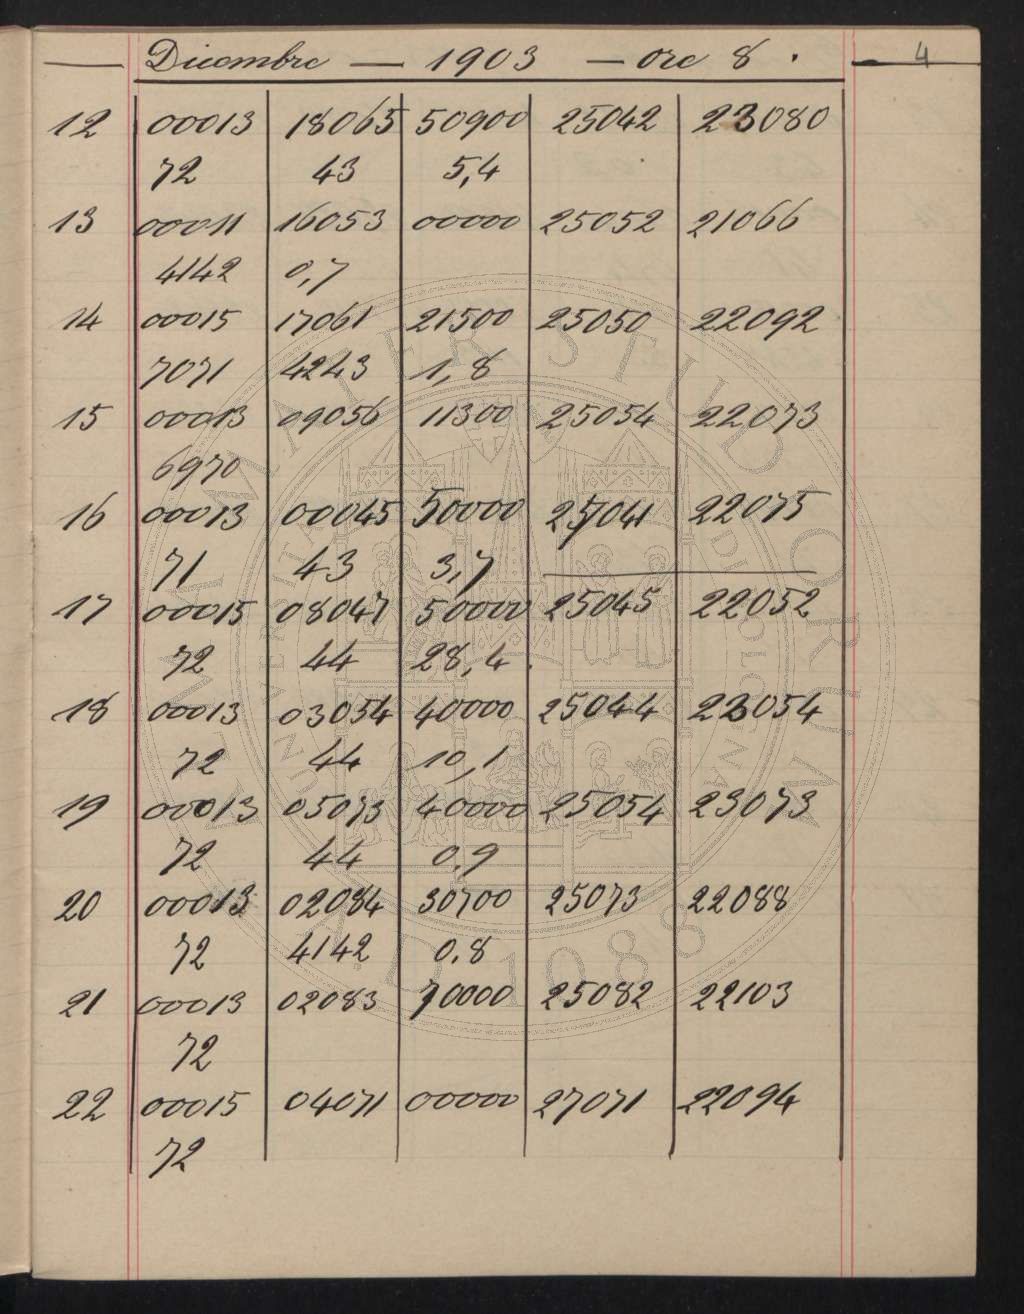 Dicembre — 1903 — ore 8 . 4
12 00013 18065 50900 25042 23080
72 43 5,4
13 00011 16053 00000 25052 21066
4142 0,7
14 00015 17061 21500 25050 22092
7071 4243 1,8
15 00013 09056 11300 25054 22073
6970
16 00013 00045 50000 25041 22075
71 43 3,7
17 00015 08047 50000 25045 22052
72 44 28,4
18 00013 03054 40000 25044 23054
72 44 10,1
19 00013 05073 40000 25054 23073
72 44 0.9
20 00013 02084 30700 25073 22088
72 4142 0.8
21 00013 02083 70000 25082 22103
72
22 00015 04071 00000 27071 22094
72
ALMA MATER STUDIORUM
A.D. 1088